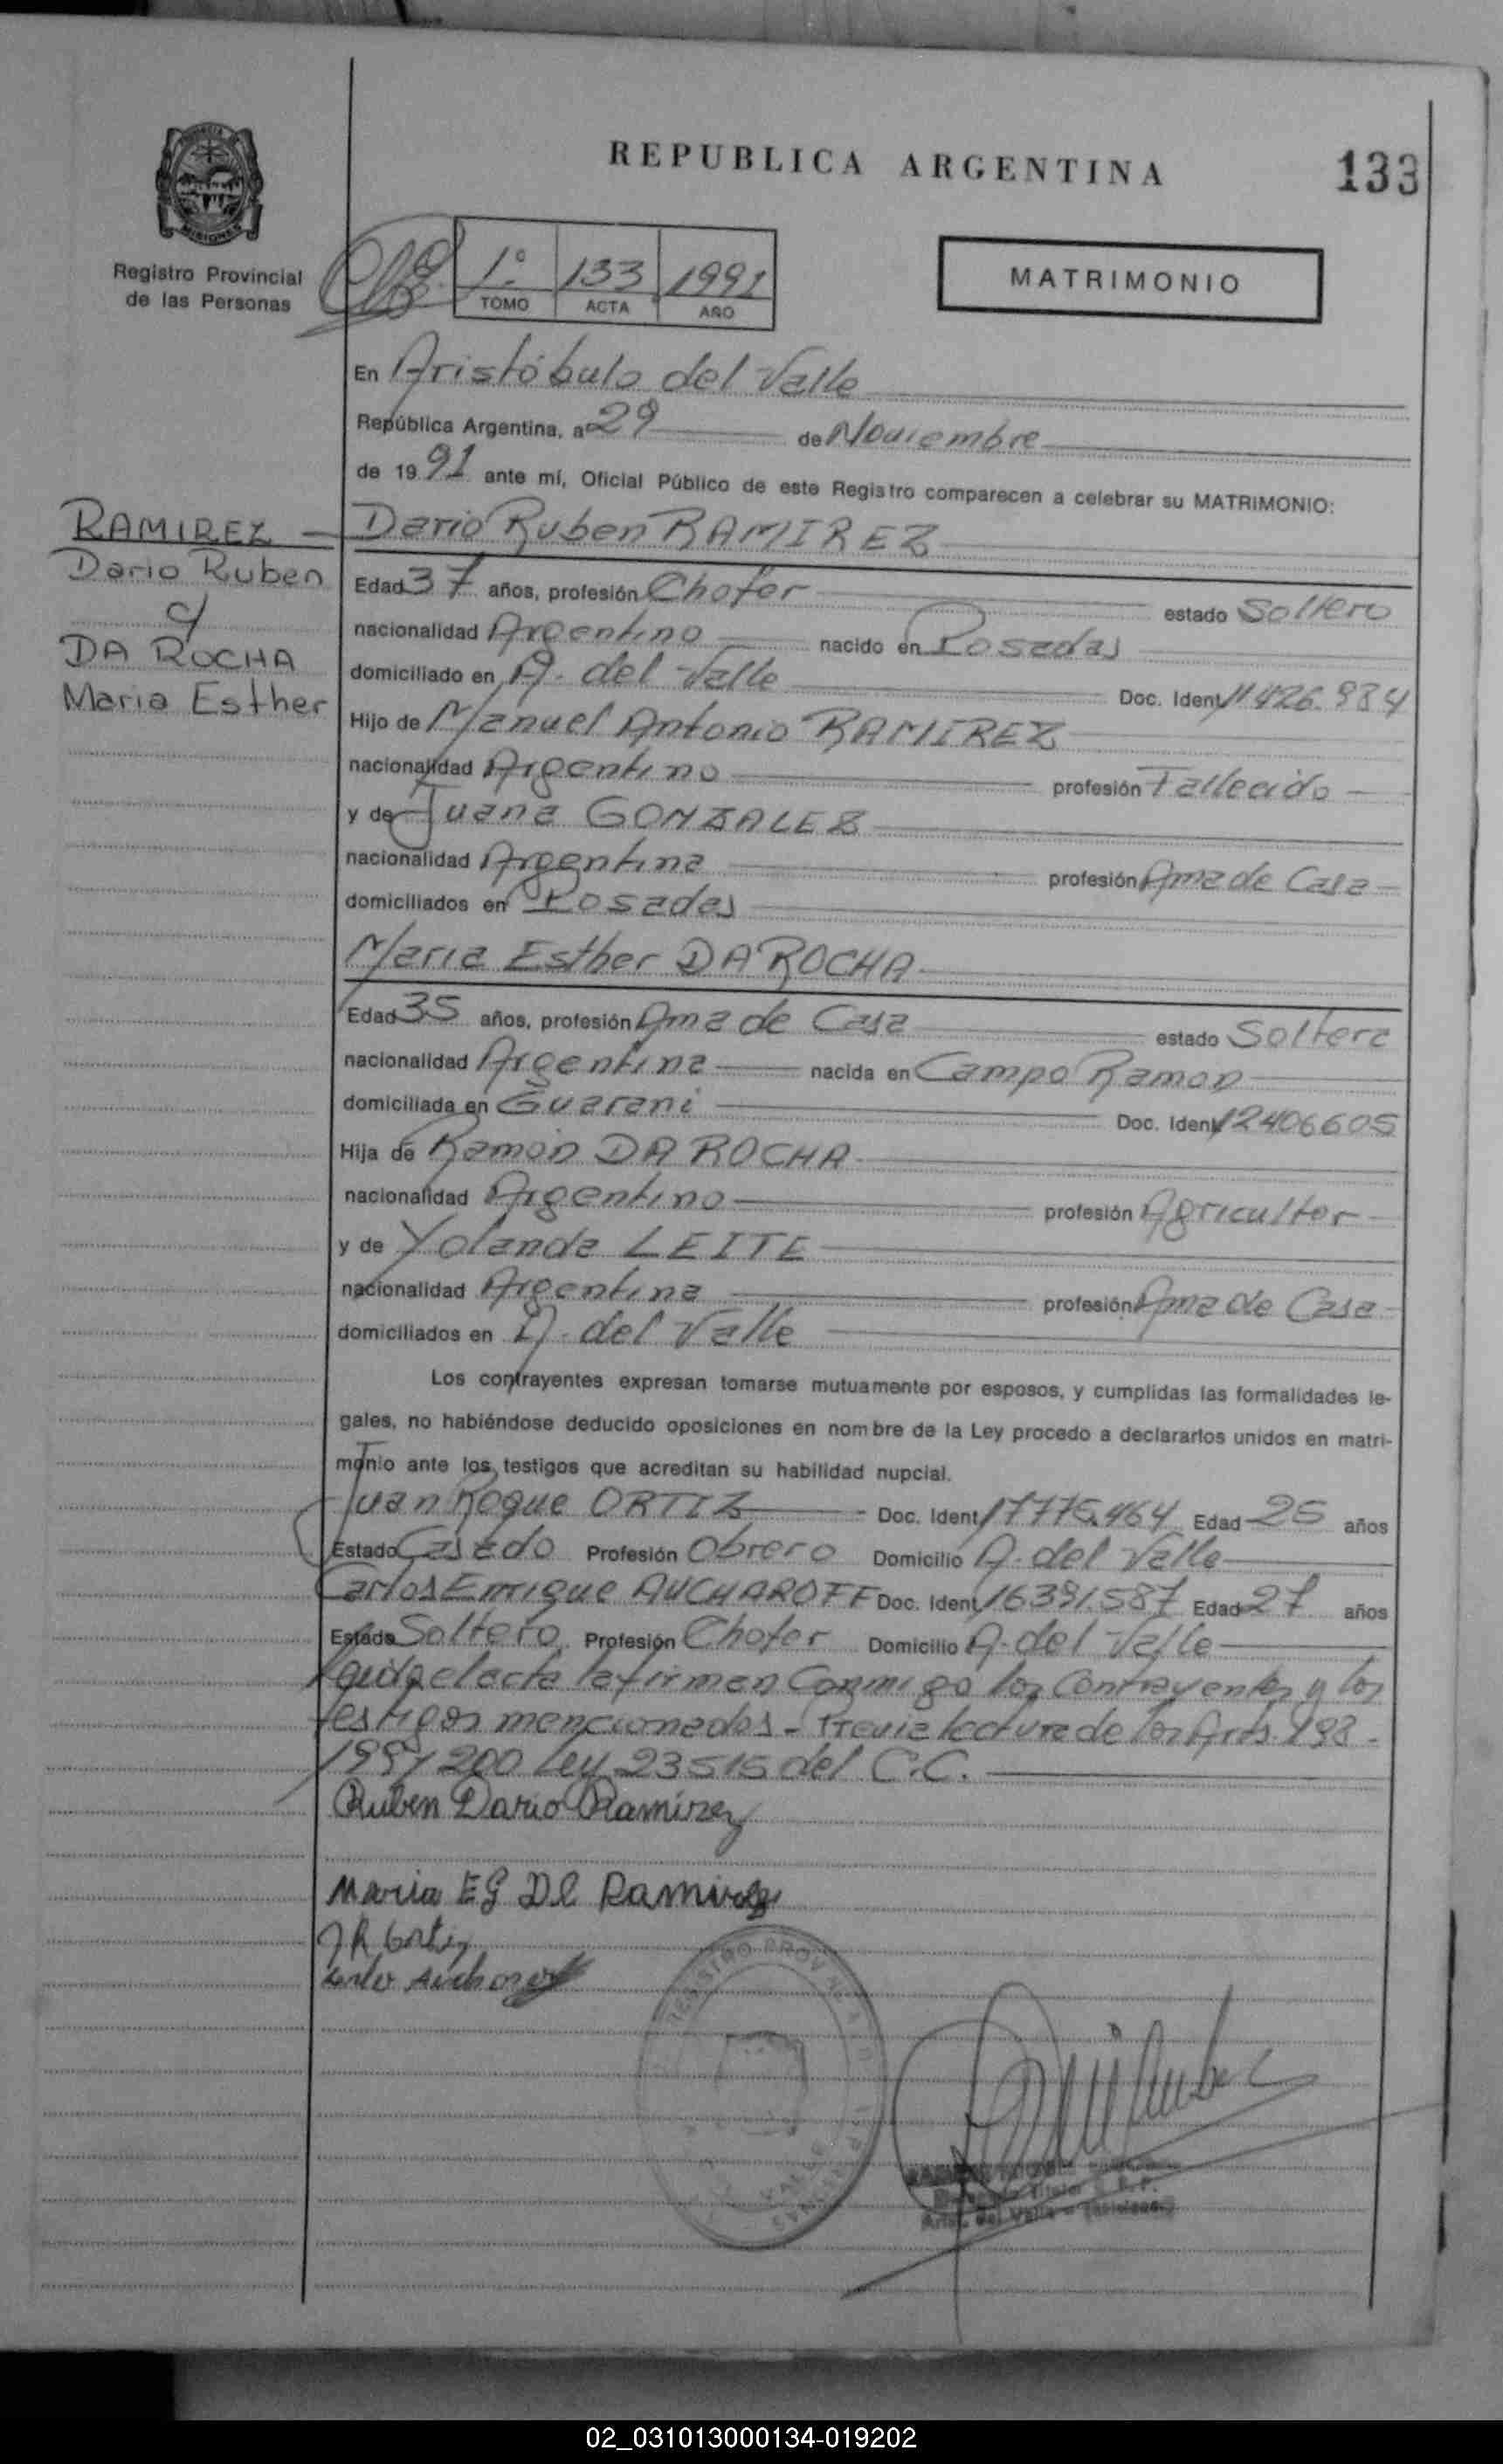 REPUBLICA ARGENTINA
133
MISIONES
Registro Provincial
de las Personas
1º 133 1991
TOMO ACTA AÑO
MATRIMONIO
En Aristóbulo del Valle
República Argentina, a 29 de Noviembre
de 19 91 ante mí, Oficial Público de este Registro comparecen a celebrar su MATRIMONIO:
RAMIREZ
Dario Ruben
c/
DA ROCHA
Maria Esther
Dario Ruben RAMIREZ
Edad 37 años, profesión Chofer estado Soltero
nacionalidad Argentino nacido en Posadas
domiciliado en A. del Valle Doc. Ident. 11426.984
Hijo de Manuel Antonio RAMIREZ
nacionalidad Argentino profesión Fallecido
y de Juana GONZALEZ
nacionalidad Argentina profesión Ama de Casa
domiciliados en Posadas
Maria Esther DA ROCHA
Edad 35 años, profesión Ama de Casa estado Soltera
nacionalidad Argentina nacida en Campo Ramon
domiciliada en Guarani Doc. Ident. 12406605
Hija de Ramón DA ROCHA
nacionalidad Argentino profesión Agricultor
y de Yolanda LEITE
nacionalidad Argentina profesión Ama de Casa
domiciliados en A. del Valle
Los contrayentes expresan tomarse mutuamente por esposos, y cumplidas las formalidades le-
gales, no habiéndose deducido oposiciones en nombre de la Ley procedo a declararlos unidos en matri-
monio ante los testigos que acreditan su habilidad nupcial.
Juan Roque ORTIZ Doc. Ident. 17775.464 Edad 25 años
Estado Casado Profesión Obrero Domicilio A. del Valle
Carlos Enrique AUCHAROFF Doc. Ident. 16391.587 Edad 27 años
Estado Soltero Profesión Chofer Domicilio A. del Valle
Leida el acta la firman Conmigo los Contrayentes y los
testigos mencionados - Previa lectura de los Arts. 198 -
199 y 200 Ley 23515 del C.C.
Ruben Dario Ramirez
Maria E Ramirez
J R Ortiz
REGISTRO PROV
Arist. del Valle - Misiones
02_031013000134-019202